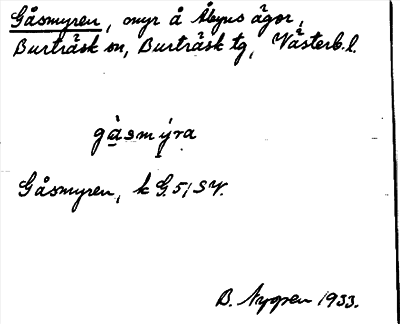 Gåsmyren, myr å Åbyns ägor,
Burträsk sn, Burträsk tg, Västerb. l.
gåsmýra
Gåsmyren, k G. 51 SV.
B. Nygren 1933.